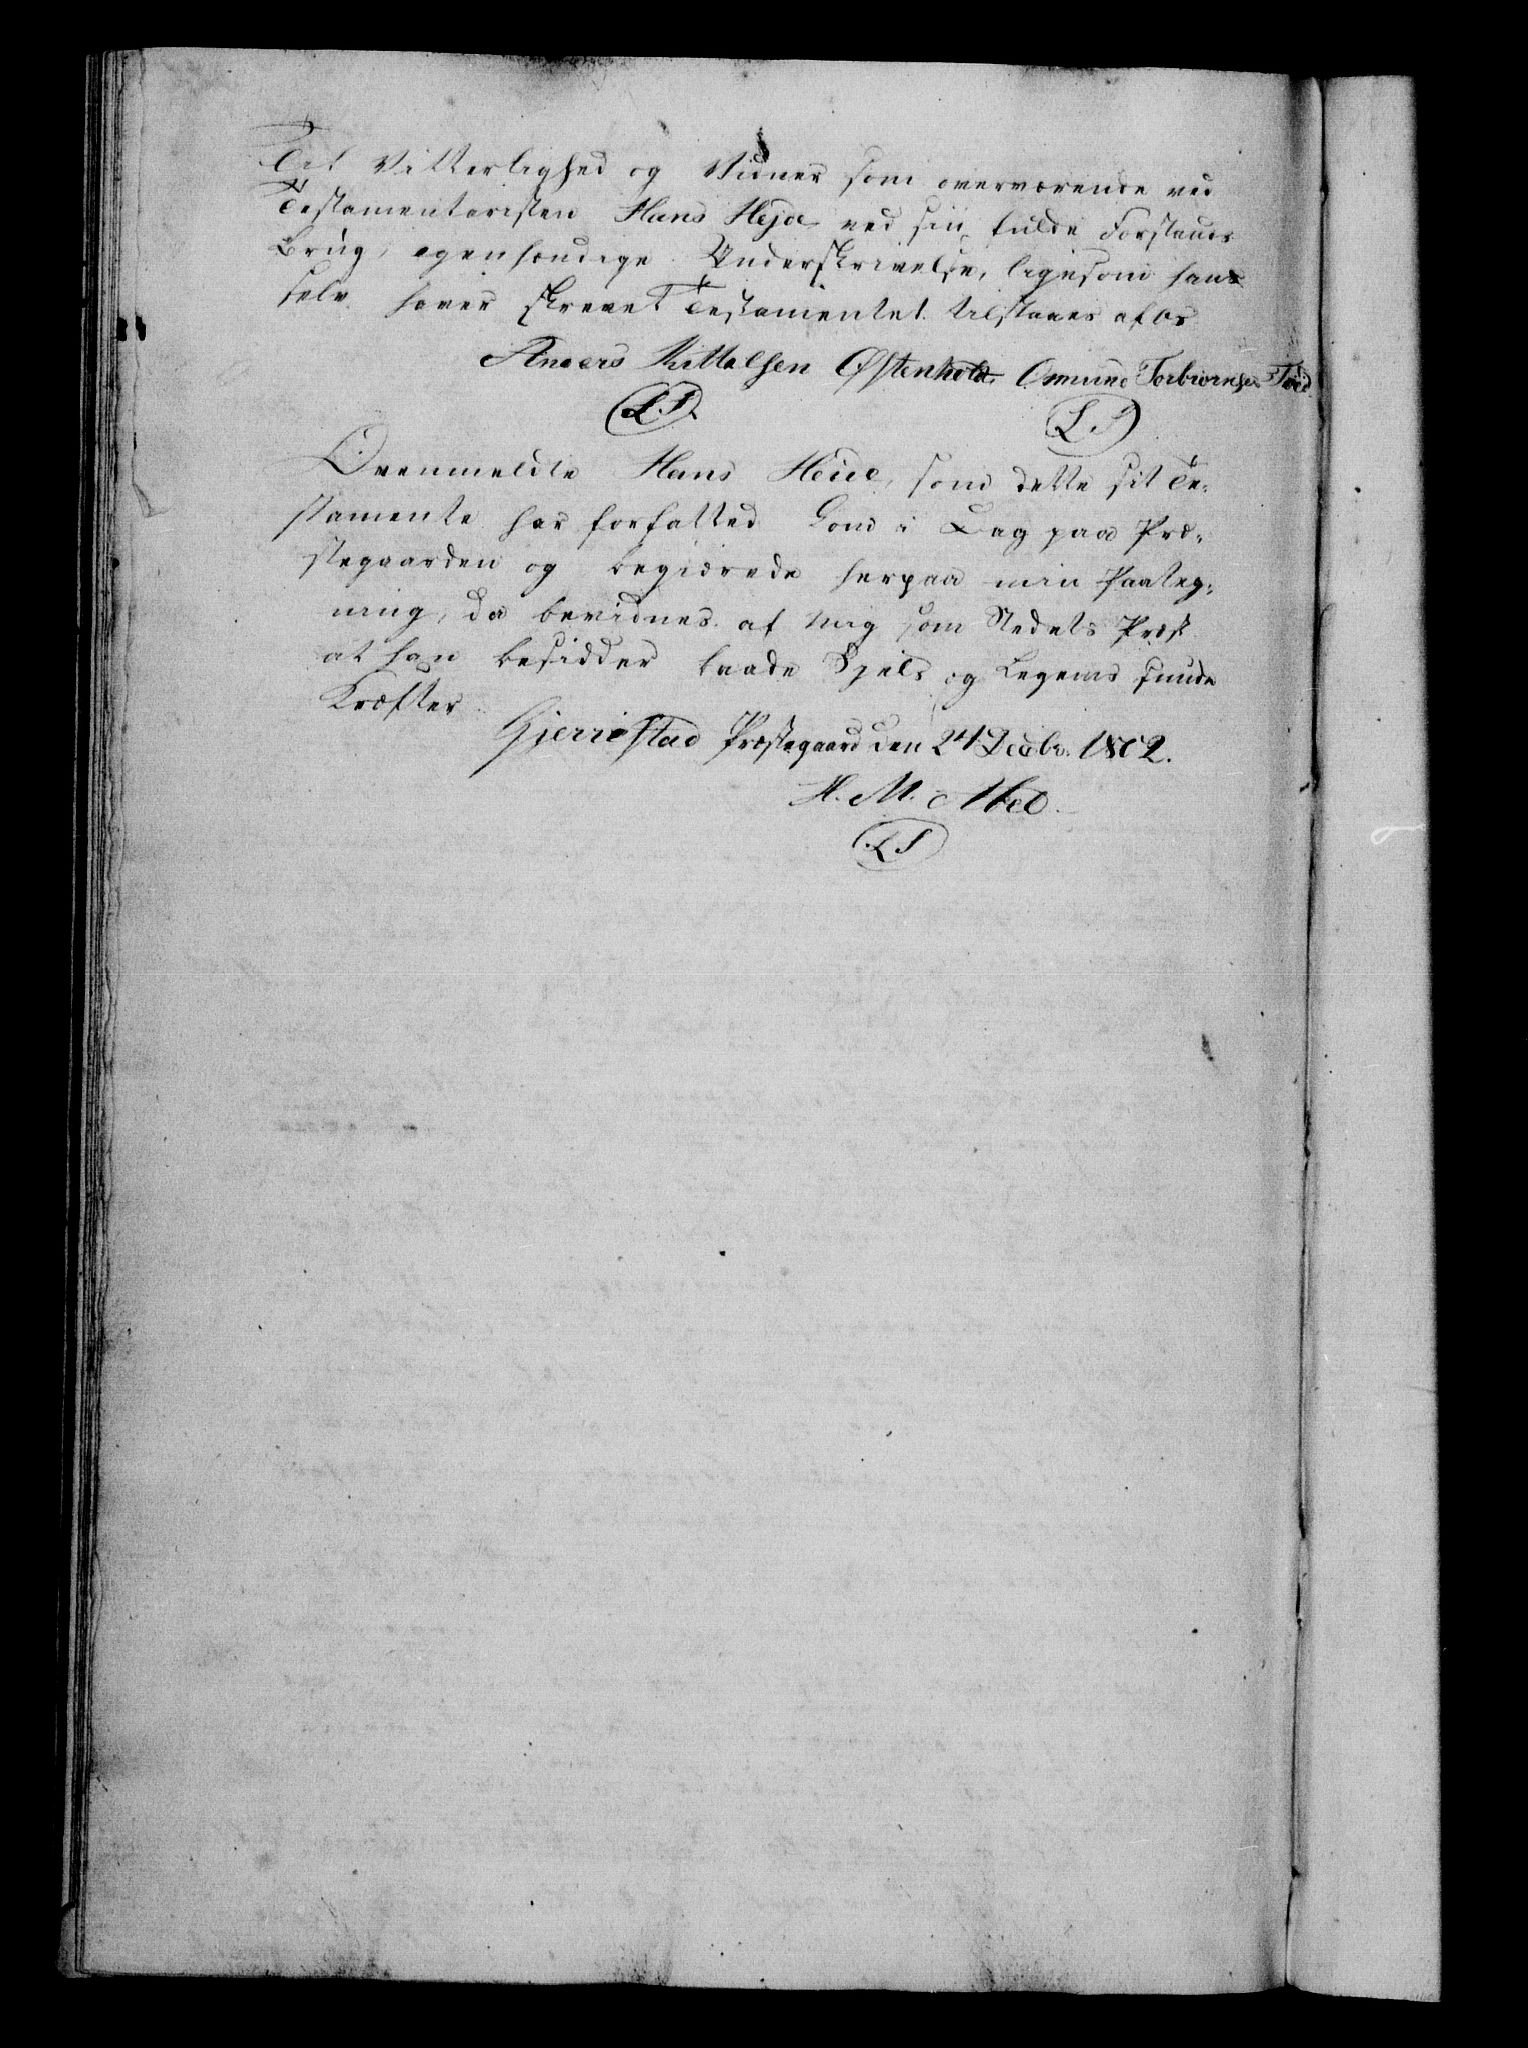 Til Vitterlighed og Vidner som overværende ved
Testamentaristen Hans Heja ved sin fulde Forstands
Brug, egenhændige Underskrivelse, ligesom han
selv haver skrevet Testamentet tilstaaes af os
Anders Kittelsen Østenholt Osmund Torbiørnsen Tvéd
L.S. L.S
Ovenmeldte Hans Heie, som dette sit Te-
stamente har forfatted kom i Dag paa Præ-
stegaarden og begiærede herpaa min Paateg-
ning, da bevidnes af mig som Stedets Præst
at han besidder baade Sjels og Legems sunde
Kræfter.
Gjerrestad Præstegaard den 24 Decbr. 1802.
H. M. Abel.
L S